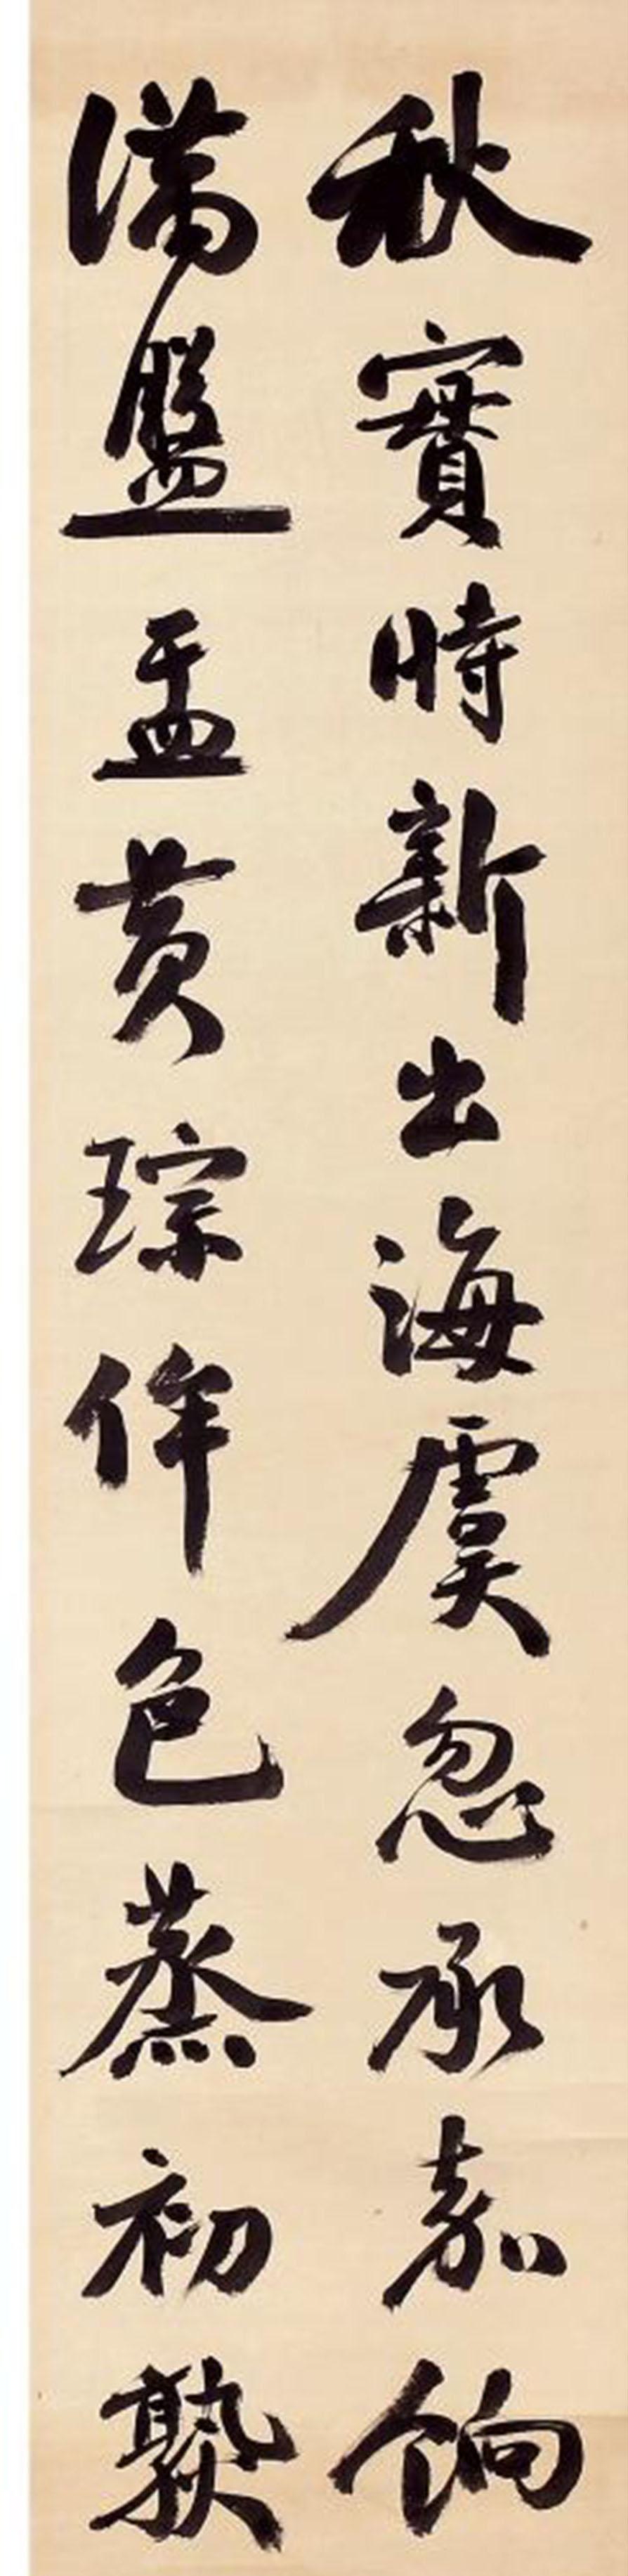 秋實時新出海虞忽承嘉餉
滿盤盂黃琮侔色蒸初熟